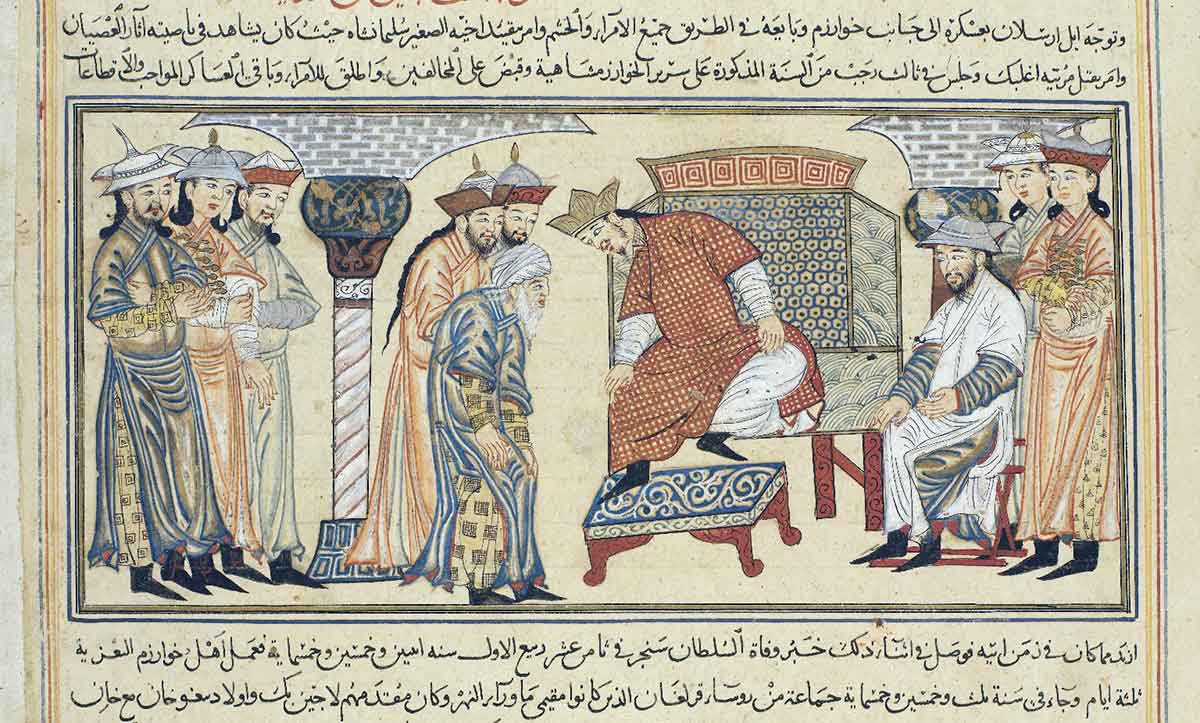 وتوجه ايل ارسلان بعسكره الى جانب خوارزم وبايعه فى الطريق جميع الامراء والحشم وامر بتقييد اخيه الصغير سليمانشاه حيث كان يشاهد فى ناصيته آثار العصيان
وامر بقتل مربيه اغلبك وجلس فى ثالث رجب من السنة المذكورة على سرير الخوارزمشاهية وقبض على المخالفين واطلق للامراء وباقى العساكر المواجب والاقطاعات
ازيد مما كان فى زمن ابيه فوصل فى اثناء ذلك خبر وفاة السلطان سنجر فى ثامن عشر ربيع الاول سنه اثنين وخمسين وخمسماية فعمل اهل خوارزم العزية
ثلثة ايام وجاء فى سنة ثلث وخمسين وخمسماية جماعة من روساء قرلغان الذين كانوا مقيمى ماوراء النهر وكان مقدمهم لاجين بك واولاد بيغوخان مع خان